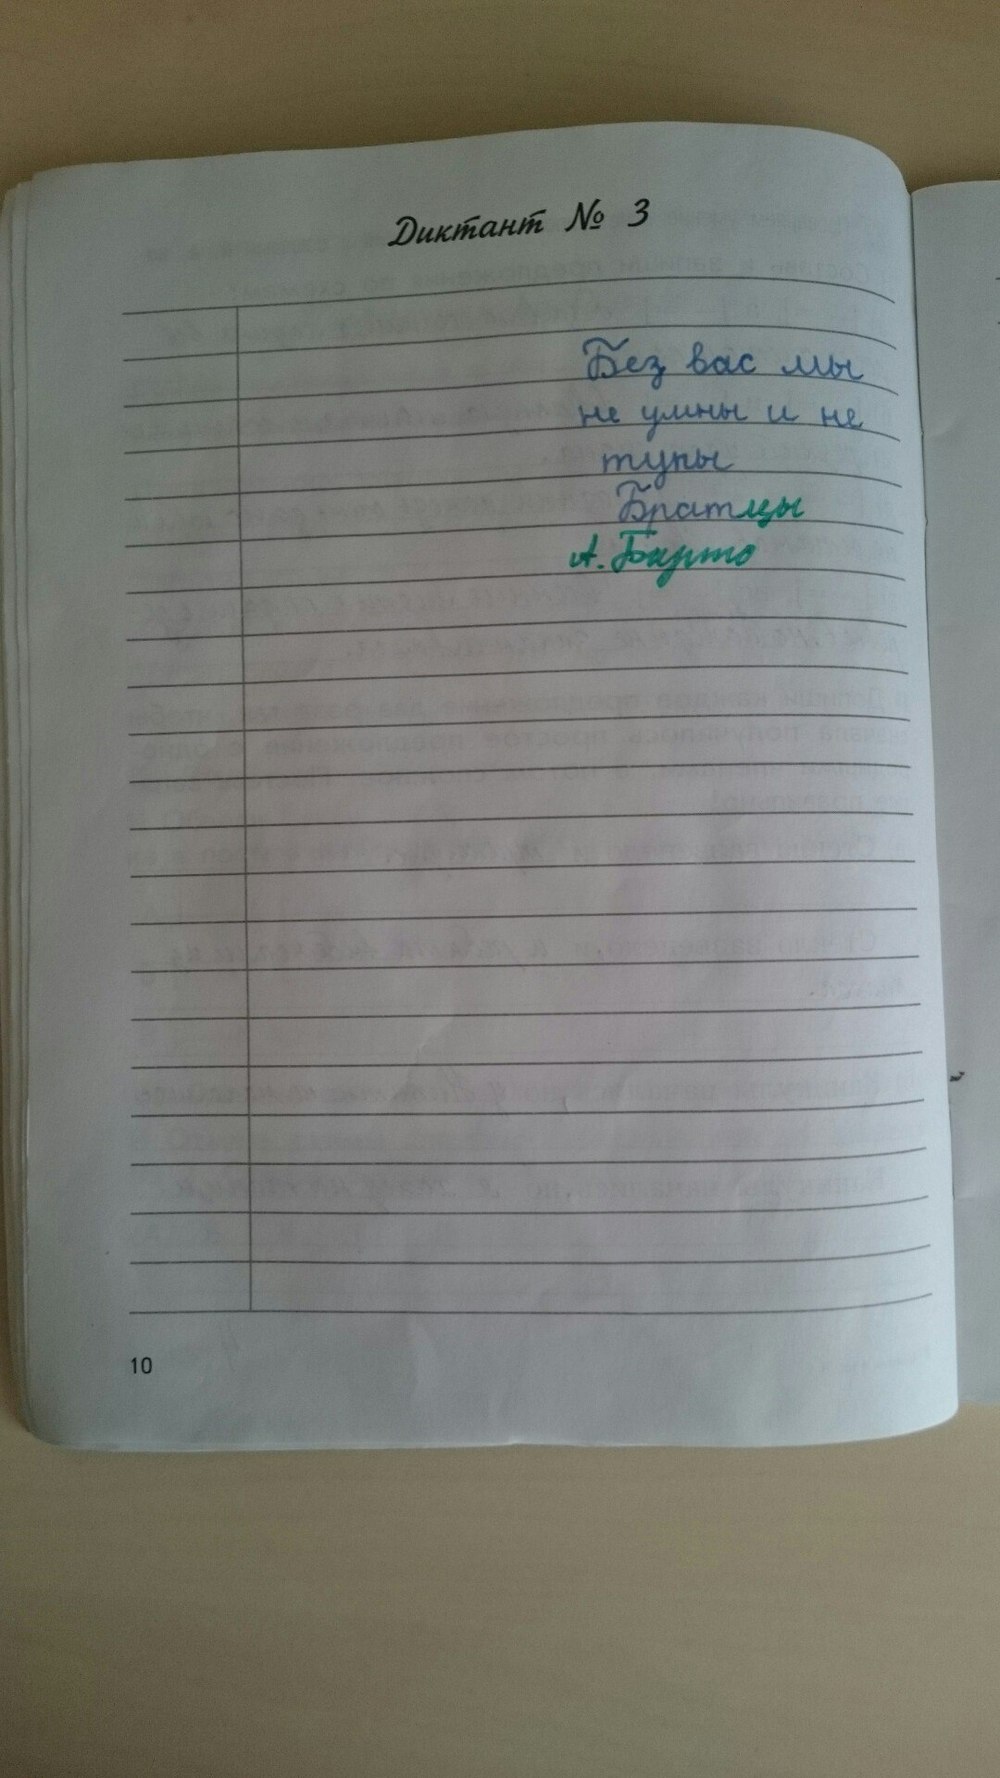 Диктант № 3
Без вас мы
не умны и не
тупы
Братцы
А. Барто
10